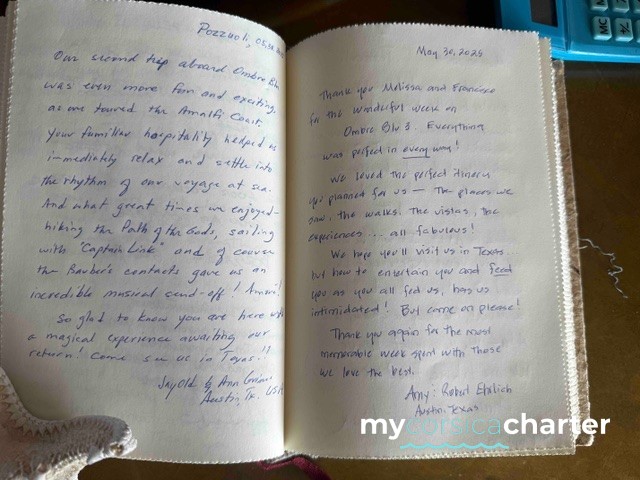 Pozzuoli, 05.30.
Our second trip aboard Ombre Blu
was even more fun and exciting,
as we toured the Amalfi Coast.
Your familiar hospitality helped us
immediately relax and settle into
the rhythm of our voyage at sea.
And what great times we enjoyed-
hiking the Path of the Gods, sailing
with "Captain Link" and of course
the Barber's contacts gave us an
incredible musical send-off!
So glad to know you are here with
a magical experience awaiting our
return! Come see us in Texas!!
& Ann
Austin, Tx. USA
May 30, 2025
Thank you Melissa and Francisco
for the wonderful week on
Ombre Blu 3. Everything
was perfect in every way!
We loved the perfect itinerary
you planned for us — The places we
saw, the walks. The vistas, the
experiences ... all fabulous!
We hope you'll visit us in Texas...
but how to entertain you and feed
you as you all fed us, has us
intimidated! But come on please!
Thank you again for the most
memorable week spent with those
we love the best.
Amy & Robert Ehrlich
Austin, Texas
mycorsicacharter
MC
M+